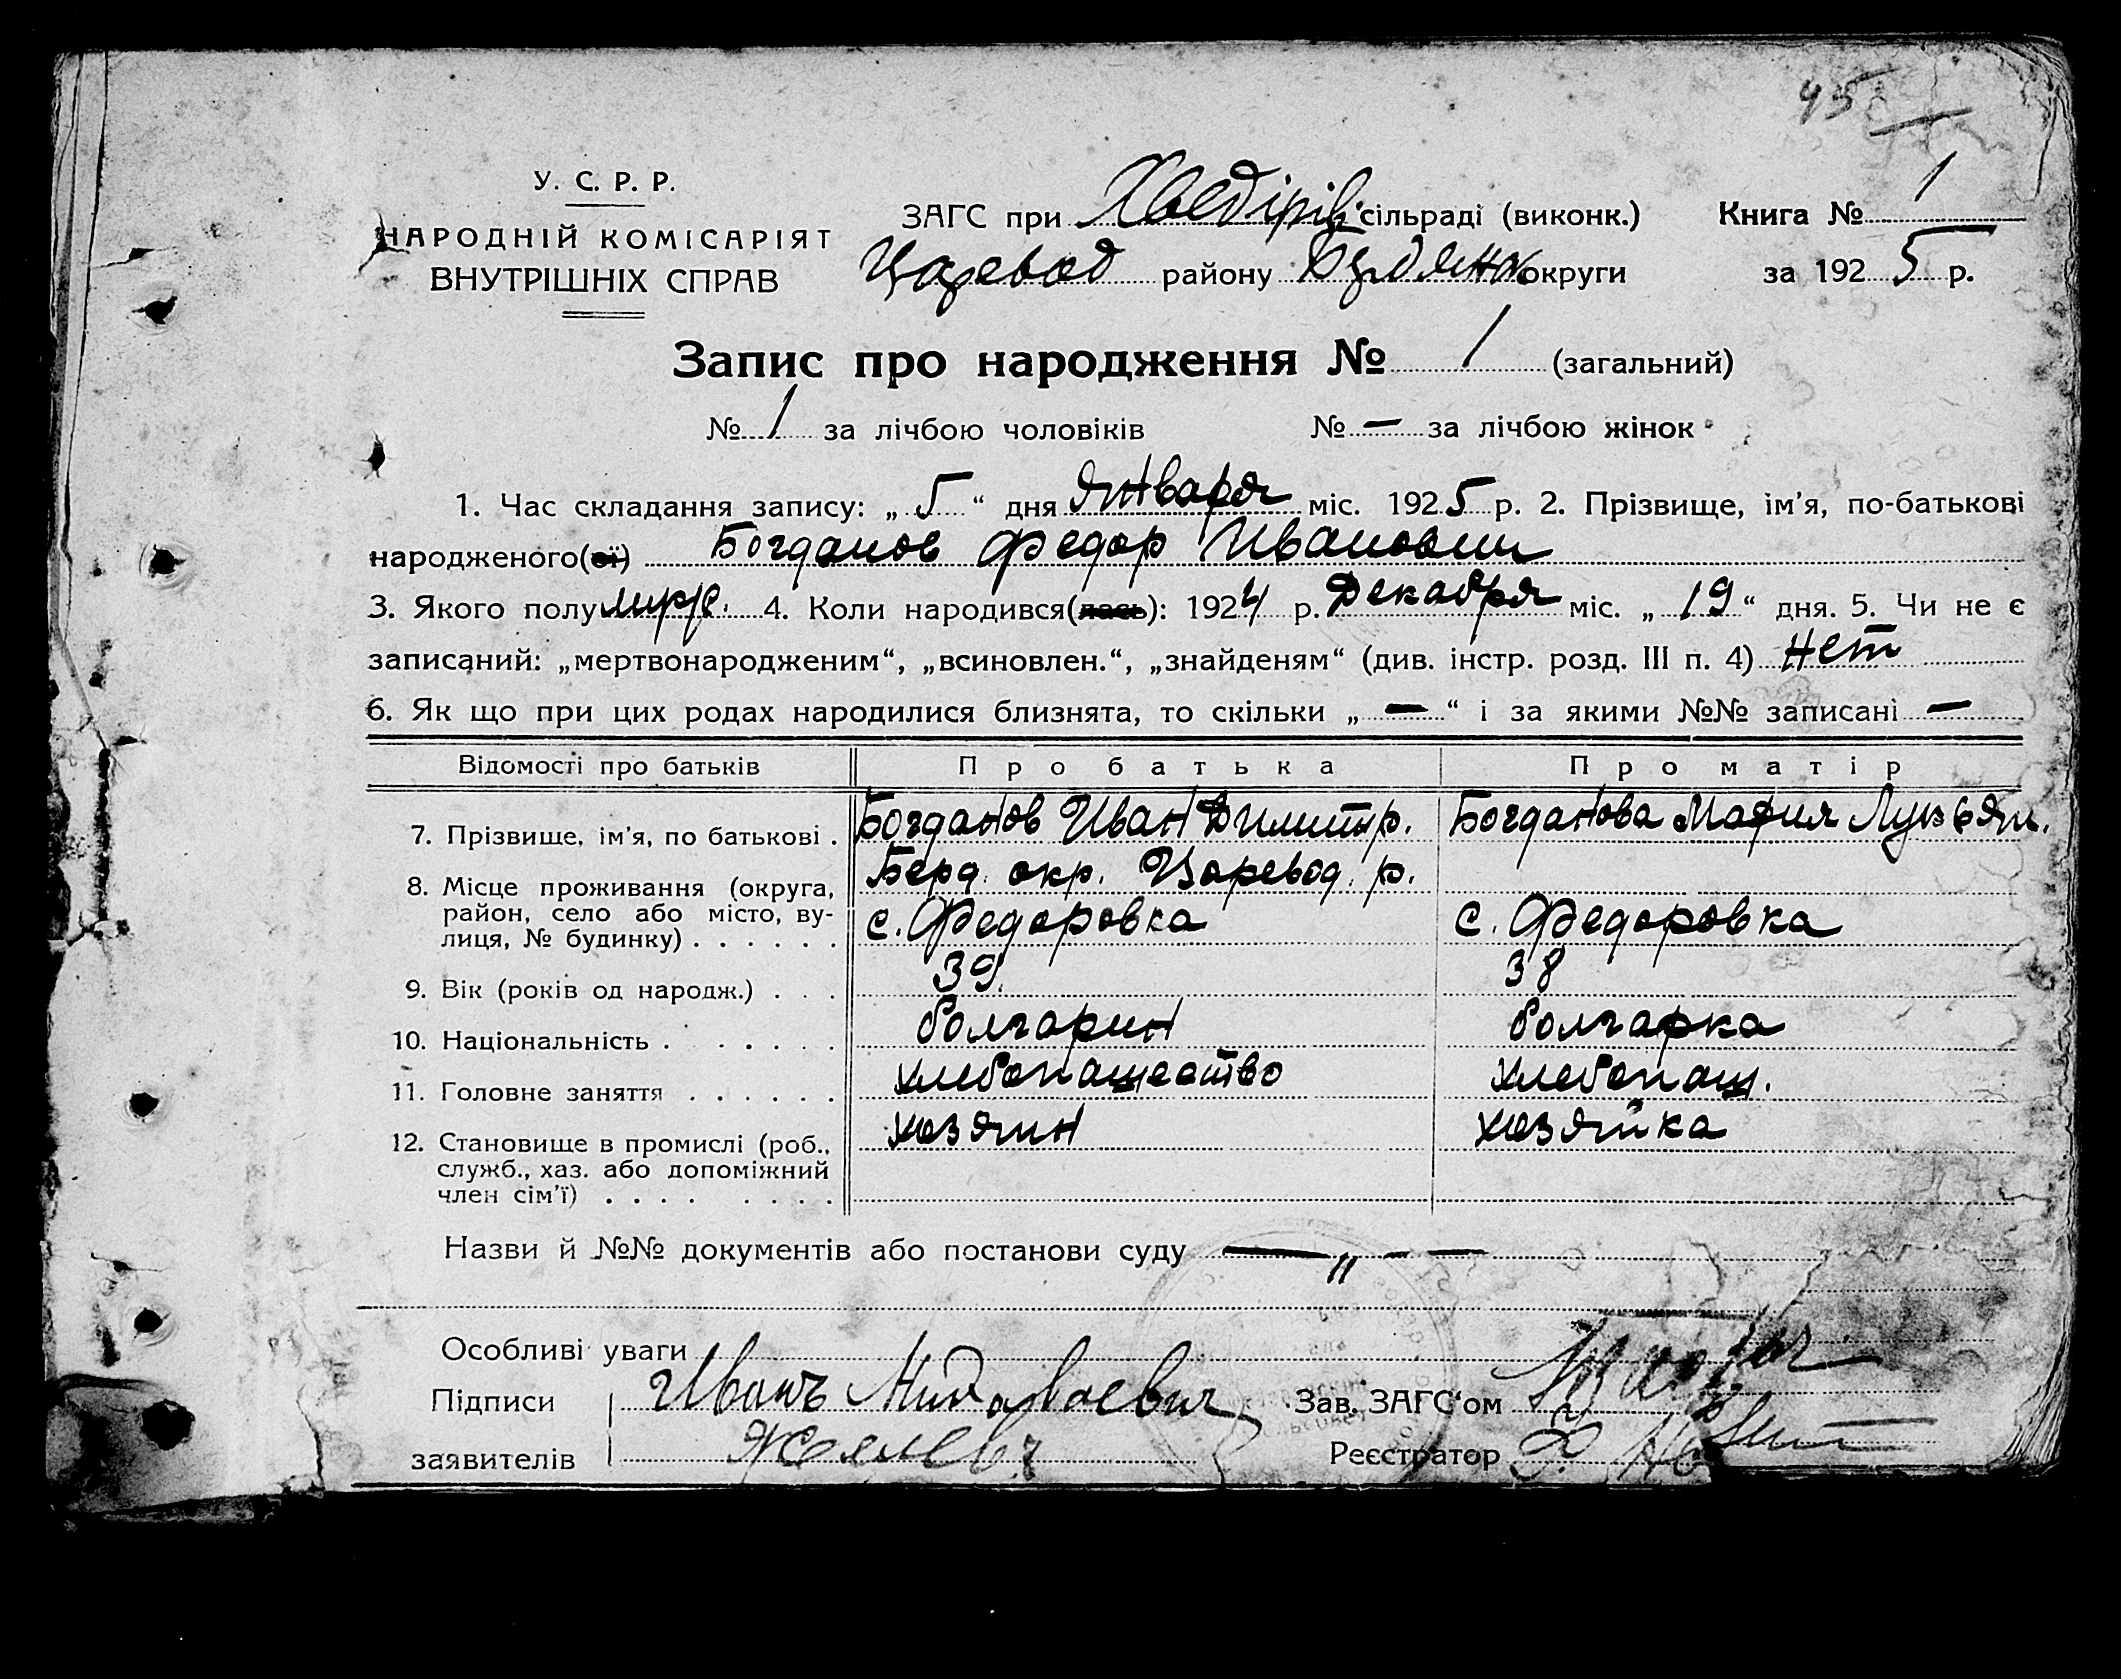 45
У. С. Р. Р.
НАРОДНІЙ КОМІСАРІЯТ
ВНУТРІШНІХ СПРАВ
ЗАГС при Хведірів. сільраді (виконк.)
Царевод району Бердянк округи
Книга № 1
за 1925 р.
Запис про народження № 1 (загальний)
№ 1 за лічбою чоловіків № — за лічбою жінок
1. Час складання запису: „ 5 “ дня Января міс. 1925 р. 2. Прізвище, ім'я, по-батькові
народженого(ої) Богданов Федор Иванович
3. Якого полу 4. Коли народився(лась): 1924 р. Декабря міс. „ 19 “ дня. 5. Чи не є
записаний: „мертвонародженим“, „всиновлен.“, „знайденям“ (див. інстр. розд. III п. 4) Нет
6. Як що при цих родах народилися близнята, то скільки „ — “ і за якими №№ записані —
Відомості про батьків Про батька Про матір
7. Прізвище, ім'я, по батькові . Богданов Иван Димитр. Богданова Мария Лукьян.
8. Місце проживання (округа, район, село або місто, ву-лиця, № будинку) . . . . . . Берд. окр. Царевод. р.
с. Федоровка с. Федоровка
9. Вік (років од народж.) . . . 39. 38
10. Національність . . . . . . болгарин болгарка
11. Головне заняття . . . . . . хлебопашество хлебопаш.
12. Становище в промислі (роб., служб., хаз. або допоміжний член сім'ї) . . . . . . . . хозяин хозяйка
Назви й №№ документів або постанови суду — „ — —
Особливі уваги
Підписи Иванъ Зав. ЗАГС'ом
заявителів Реєстратор